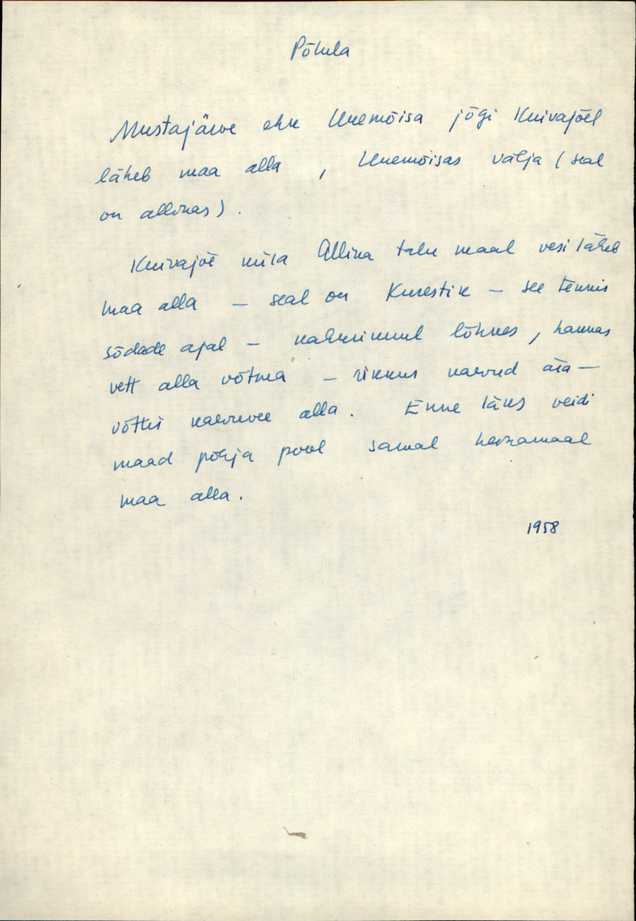 Põhula
Mustajärve ehk Unemõisa jõgi Kuivajõel
läheb maa alla, Unemõisas välja (seal
on allikas).
Kuivajõe küla Allika talu maal vesi läheb
maa alla – seal on Kurestik – see tennis
sõdade ajal – lõhkes, hakkas
vett alla võtma – rikkus karud ära –
võttis alla. Enne läks veidi
maad põhja pool samal heinamaal
maa alla.
1958